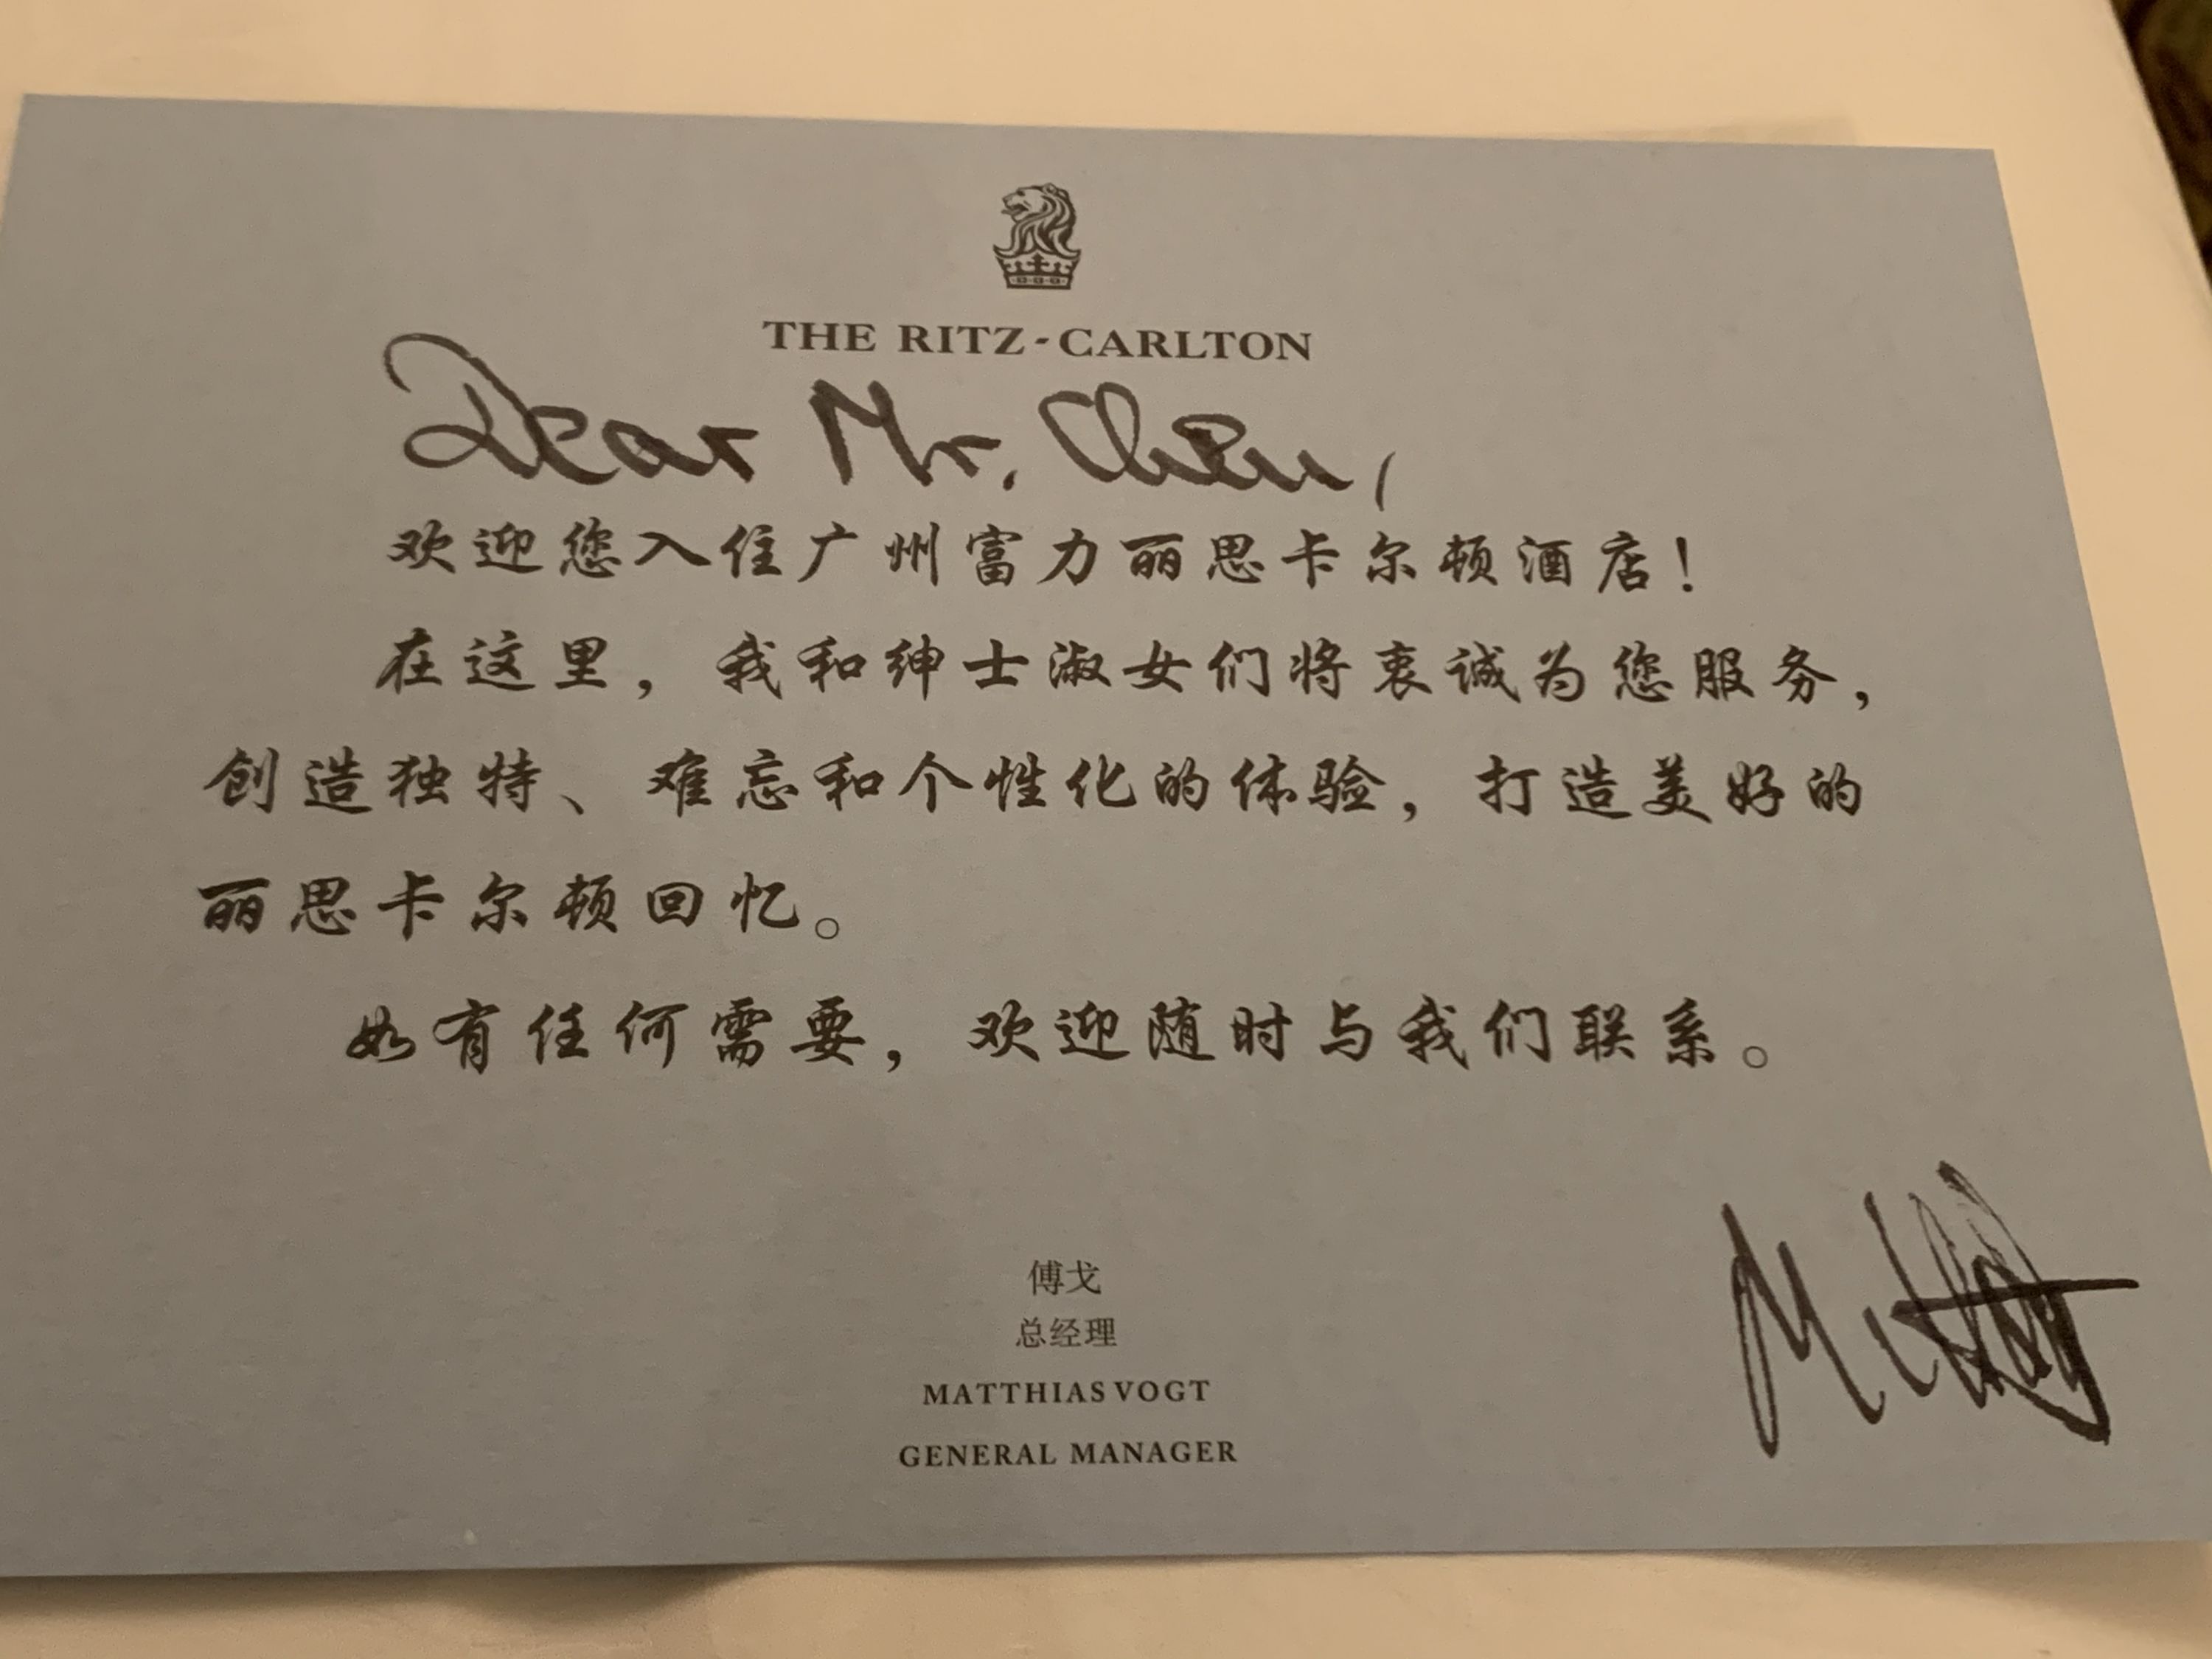 THE RITZ-CARLTON
Dear Mr. Chen,
欢迎您入住广州富力丽思卡尔顿酒店！
在这里，我和绅士淑女们将衷诚为您服务，
创造独特、难忘和个性化的体验，打造美好的
丽思卡尔顿回忆。
如有任何需要，欢迎随时与我们联系。
傅戈
总经理
MATTHIAS VOGT
GENERAL MANAGER